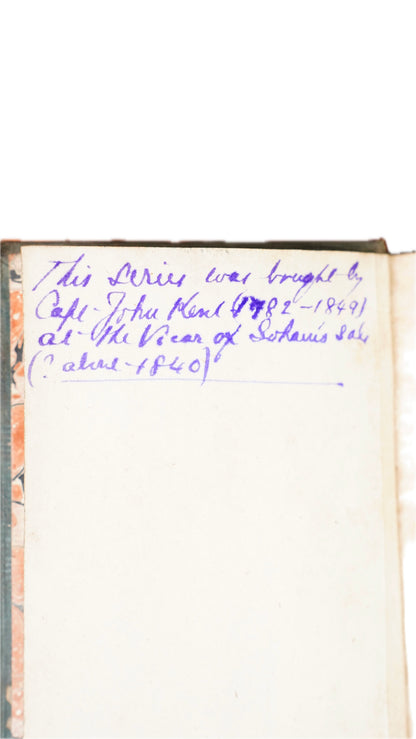 This series was bought by
Capt. John Kent (1782–1849)
at the Vicar of Soham's sale
(? about 1840)